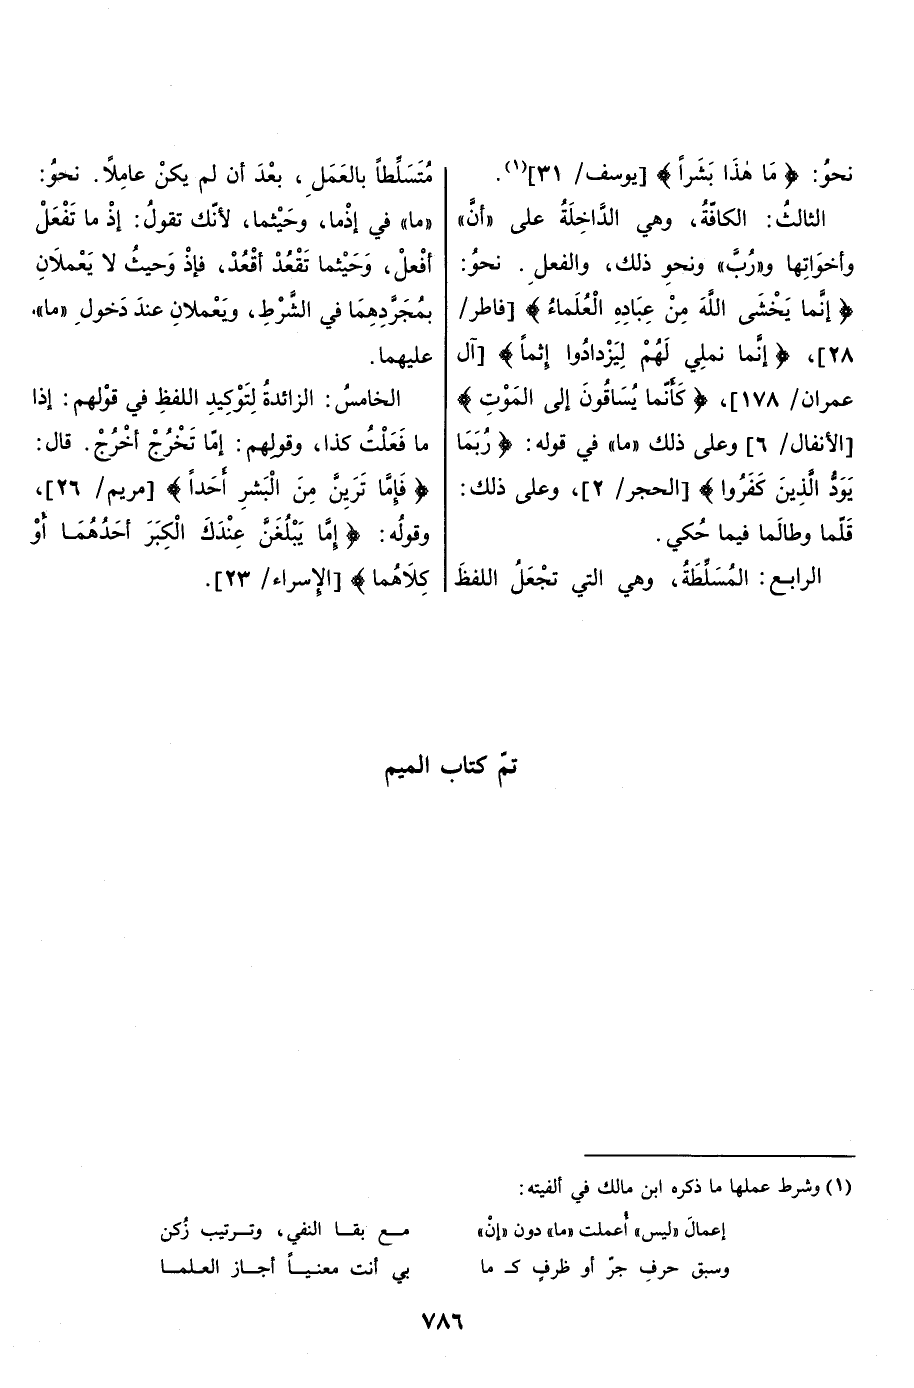 نحوُ: ﴿ مَا هٰذَا بَشَراً ﴾ [يوسف/ ٣١](١).
الثالثُ: الكافّةُ، وهي الدَّاخِلَةُ على «أنَّ»
وأخوَاتِها و«رُبَّ» ونحوِ ذلك، والفعلِ. نحوُ:
﴿ إنَّما يَخْشَى اللَّهَ مِنْ عِبَادِهِ الْعُلَماءُ ﴾ [فاطر/
٢٨]، ﴿ إنَّما نملِي لَهُمْ لِيَزْدادُوا إِثماً ﴾ [آل
عمران/ ١٧٨]، ﴿ كَأَنَّما يُسَاقُونَ إلى المَوْتِ ﴾
[الأنفال/ ٦] وعلى ذلك «ما» في قوله: ﴿ رُبَمَا
يَوَدُّ الَّذِينَ كَفَرُوا ﴾ [الحجر/ ٢]، وعلى ذلك:
قَلّما وطالَما فيما حُكي.
الرابع: المُسَلِّطَةُ، وهي التي تجْعَلُ اللفظَ
مُتَسَلِّطاً بالعَمَلِ، بعْدَ أن لم يكنْ عامِلاً. نحوُ:
«ما» في إذْما، وحَيْثما، لأنّك تقولُ: إذْ ما تَفْعَلْ
أفْعلْ، وَحَيْثما تَقْعُدْ أقْعُدْ، فإذْ وَحيثُ لا يَعْملانِ
بمُجَرَّدِهِمَا في الشَّرْطِ، ويَعْملانِ عندَ دَخولِ «ما»،
عليهما.
الخامسُ: الزائدةُ لِتَوْكِيدِ اللفظِ في قوْلهم: إذا
ما فَعَلْتُ كذا، وقولِهم: إمّا تَخْرُجْ أخْرُجْ. قال:
﴿ فَإِمَّا تَرَيِنَّ مِنَ الْبَشرِ أَحَداً ﴾ [مريم/ ٢٦]،
وقولُه: ﴿ إِمَّا يَبْلُغَنَّ عِنْدَكَ الْكِبَرَ أحَدُهُمَـا أَوْ
كِلَاهُما ﴾ [الإسراء/ ٢٣].
تمّ كتاب الميم
(١) وشرط عملها ما ذكره ابن مالك في ألفيته:
إعمالَ «ليس» أُعملت «ما» دون «إنْ» مـع بقـا النفي، وتـرتيب زُكن
وسبق حرفِ جرّ أو ظرفٍ كـ ما بي أنت معنيـاً أجـاز العلمـا
٧٨٦